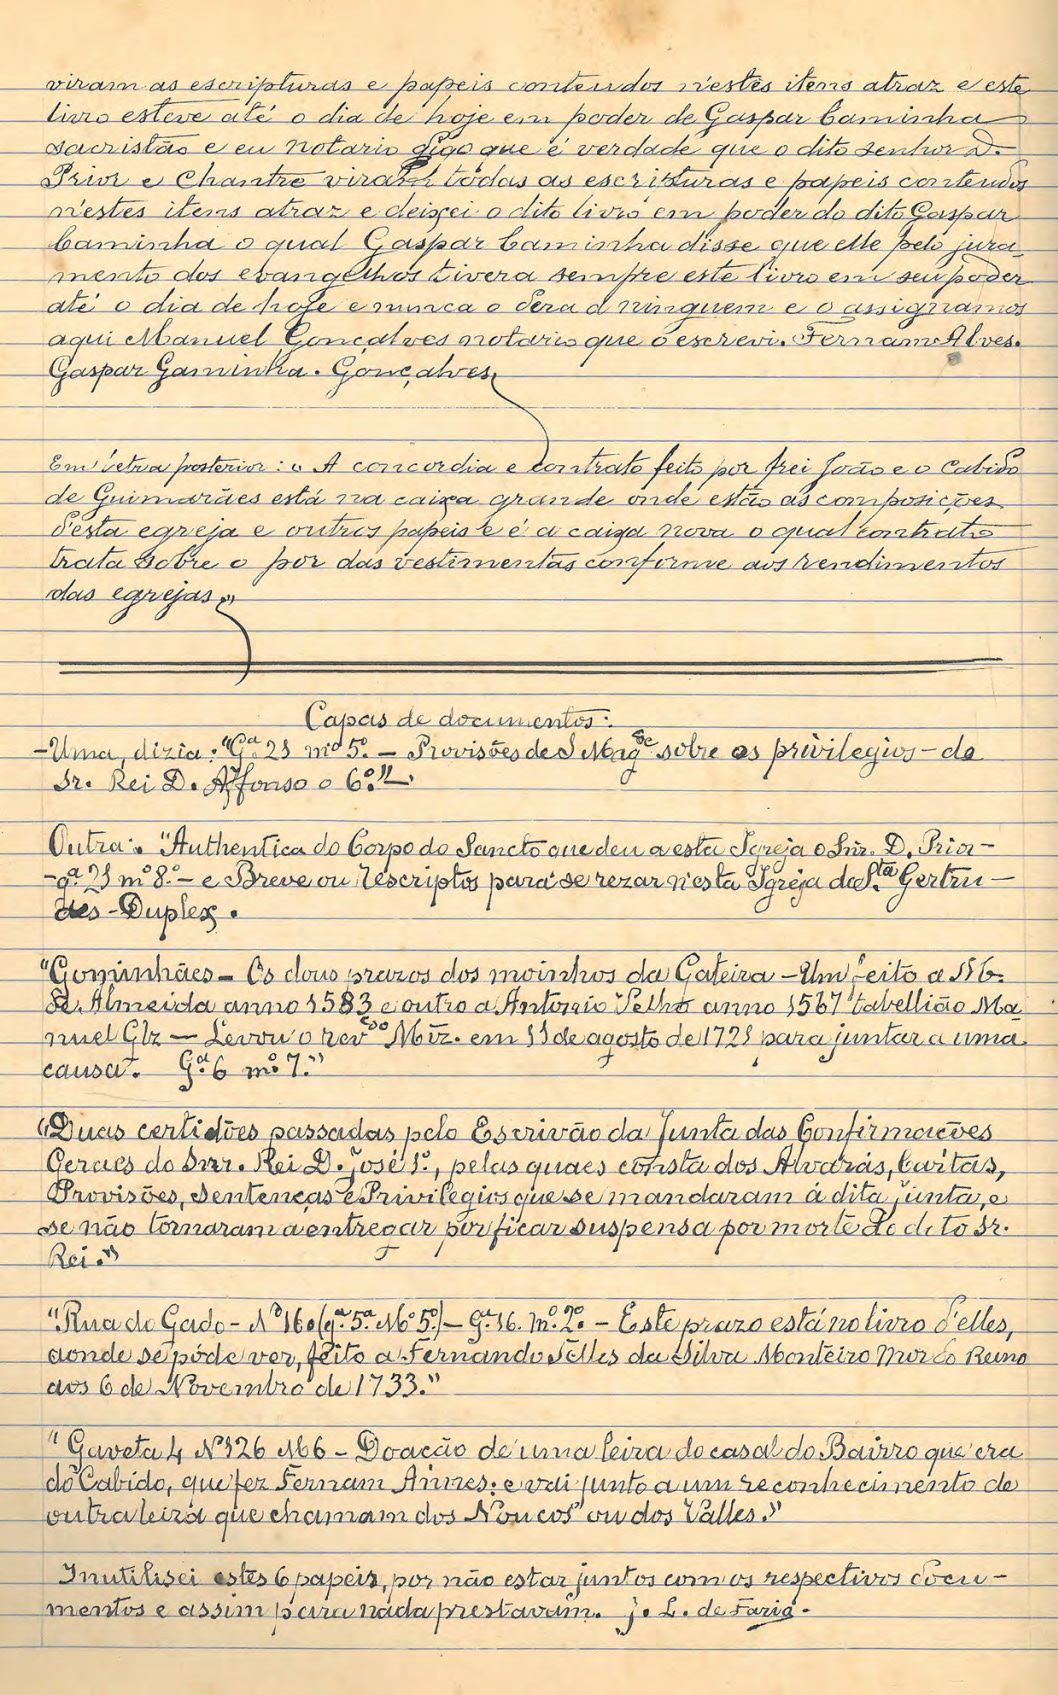 viram as escripturas e papeis contendos n'estes itens atraz e este
livro esteve até o dia de hoje em poder de Gaspar Caminha
sacristão e eu notario digo que é verdade que o dito senhor D.
Prior e Chantre viram todas as escripturas e papeis contendos
n'estes itens atraz e deixei o dito livro em poder do dito Gaspar
Caminha o qual Gaspar Caminha disse que elle pelo jura-
mento dos evangelhos tivera sempre este livro em seu poder
até o dia de hoje e nunca o dera a ninguem e o assignamos
aqui Manuel Gonçalves notario que o escrevi. Fernam Alves.
Gaspar Gaminha. Gonçalves
Em letra posterior: "A concordia e contrato feito por frei João e o Cabido
de Guimarães está na caixa grande onde estão as composições
d'esta egreja e outros papeis e é a caixa nova o qual contrato
trata sobre o por das vestimentas conforme aos rendimentos
das egrejas"
Capas de documentos:
-Uma, dizia: "Gª 21 mº 5º. - Provisões de S Magde sobre os privilegios - do
Sr. Rei D. Affonso o 6º."
Outra: "Authentica do Corpo do Sancto que deu a esta Igreja o Snr. D. Prior-
-gª 21 mº 8º. - e Breve ou rescriptos para se rezar n'esta Igreja da Sta Gertru-
des - Duplex.
"Gominhães - Os dous prazos dos moinhos da Gateira - Um feito a
de Almeida anno 1583 e outro a Antonio Velho anno 1567 tabellião Ma-
nuel Glz - Levou o revdo Miz. em 11 de agosto de 1721 para juntar a uma
causa. Gª 6 mº 7."
"Duas certidões passadas pelo Escrivão da Junta das Confirmações
Geraes do Snr. Rei D. José 1º., pelas quaes consta dos Alvarás, Cartas,
Provisões, Sentenças e Privilegios que se mandaram á dita junta, e
se não tornaram a entregar por ficar suspensa por morte do dito Sr.
Rei."
"Rua do Gado - Nº 16. (gª 5ª Mº 5º.) - Gª 16. mº 2º. - Este prazo está no livro d'elles,
aonde se póde ver, feito a Fernando Telles da Silva Monteiro Mor do Reino
aos 6 de Novembro de 1733."
"Gaveta 4 Nº 126 M 6 - Doação de uma leira do casal do Bairro que era
do Cabido, que fez Fernam Annes; e vai junto a um reconhecimento de
outra leira que chamam dos Noucos ou dos Valles."
Inutilisei estes 6 papeis, por não estar juntos com os respectivos docu-
mentos e assim para nada prestavam. J. L. de Faria.